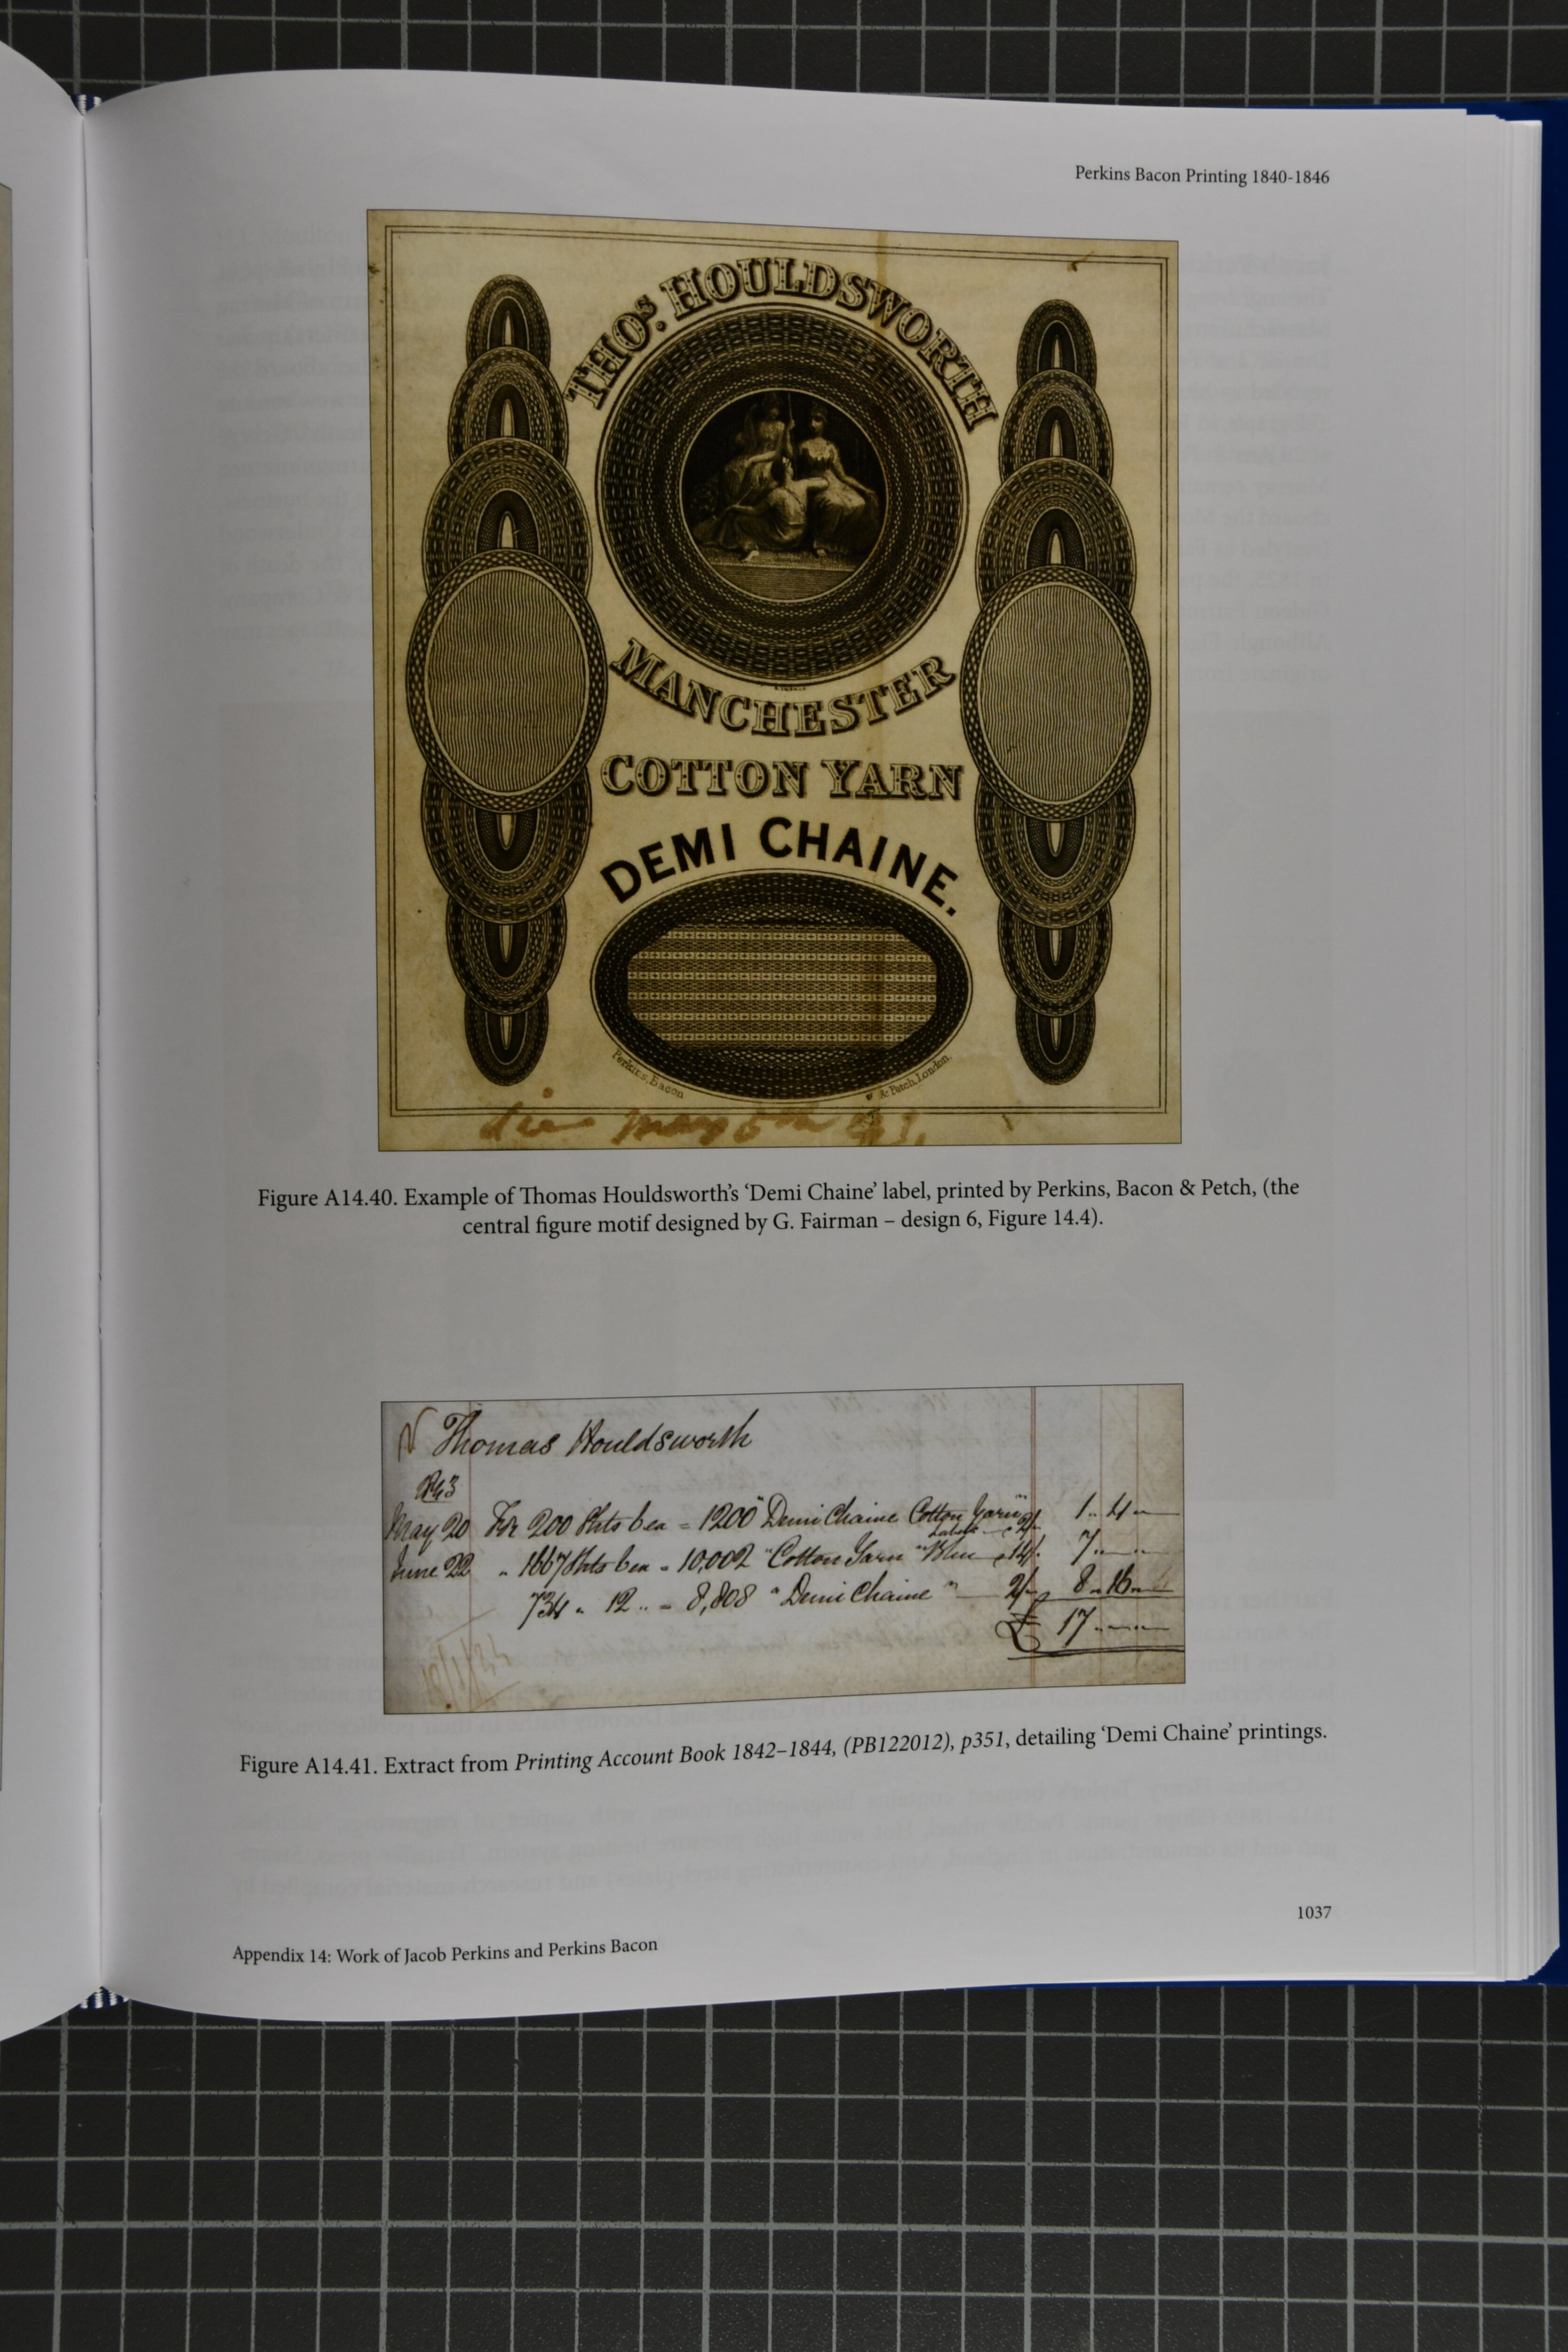 Perkins Bacon Printing 1840-1846
THOS. HOULDSWORTH
MANCHESTER
COTTON YARN
DEMI CHAINE.
Perkins, Bacon & Petch, London.
May 5th
Figure A14.40. Example of Thomas Houldsworth's 'Demi Chaine' label, printed by Perkins, Bacon & Petch, (the
central figure motif designed by G. Fairman – design 6, Figure 14.4).
Thomas Houldsworth
1843
May 20 For 200 Shts 6 ea = 1200 "Demi Chaine Cotton Yarn" Labels 2/- 1..4..-
June 22 " 1667 Shts 6 ea = 10,002 "Cotton Yarn" Blue 14/- 7..-..-
734 " 12 .. = 8,808 "Demi Chaine" 2/- 8..16..-
£ 17..-..-
Figure A14.41. Extract from Printing Account Book 1842–1844, (PB122012), p351, detailing 'Demi Chaine' printings.
1037
Appendix 14: Work of Jacob Perkins and Perkins Bacon